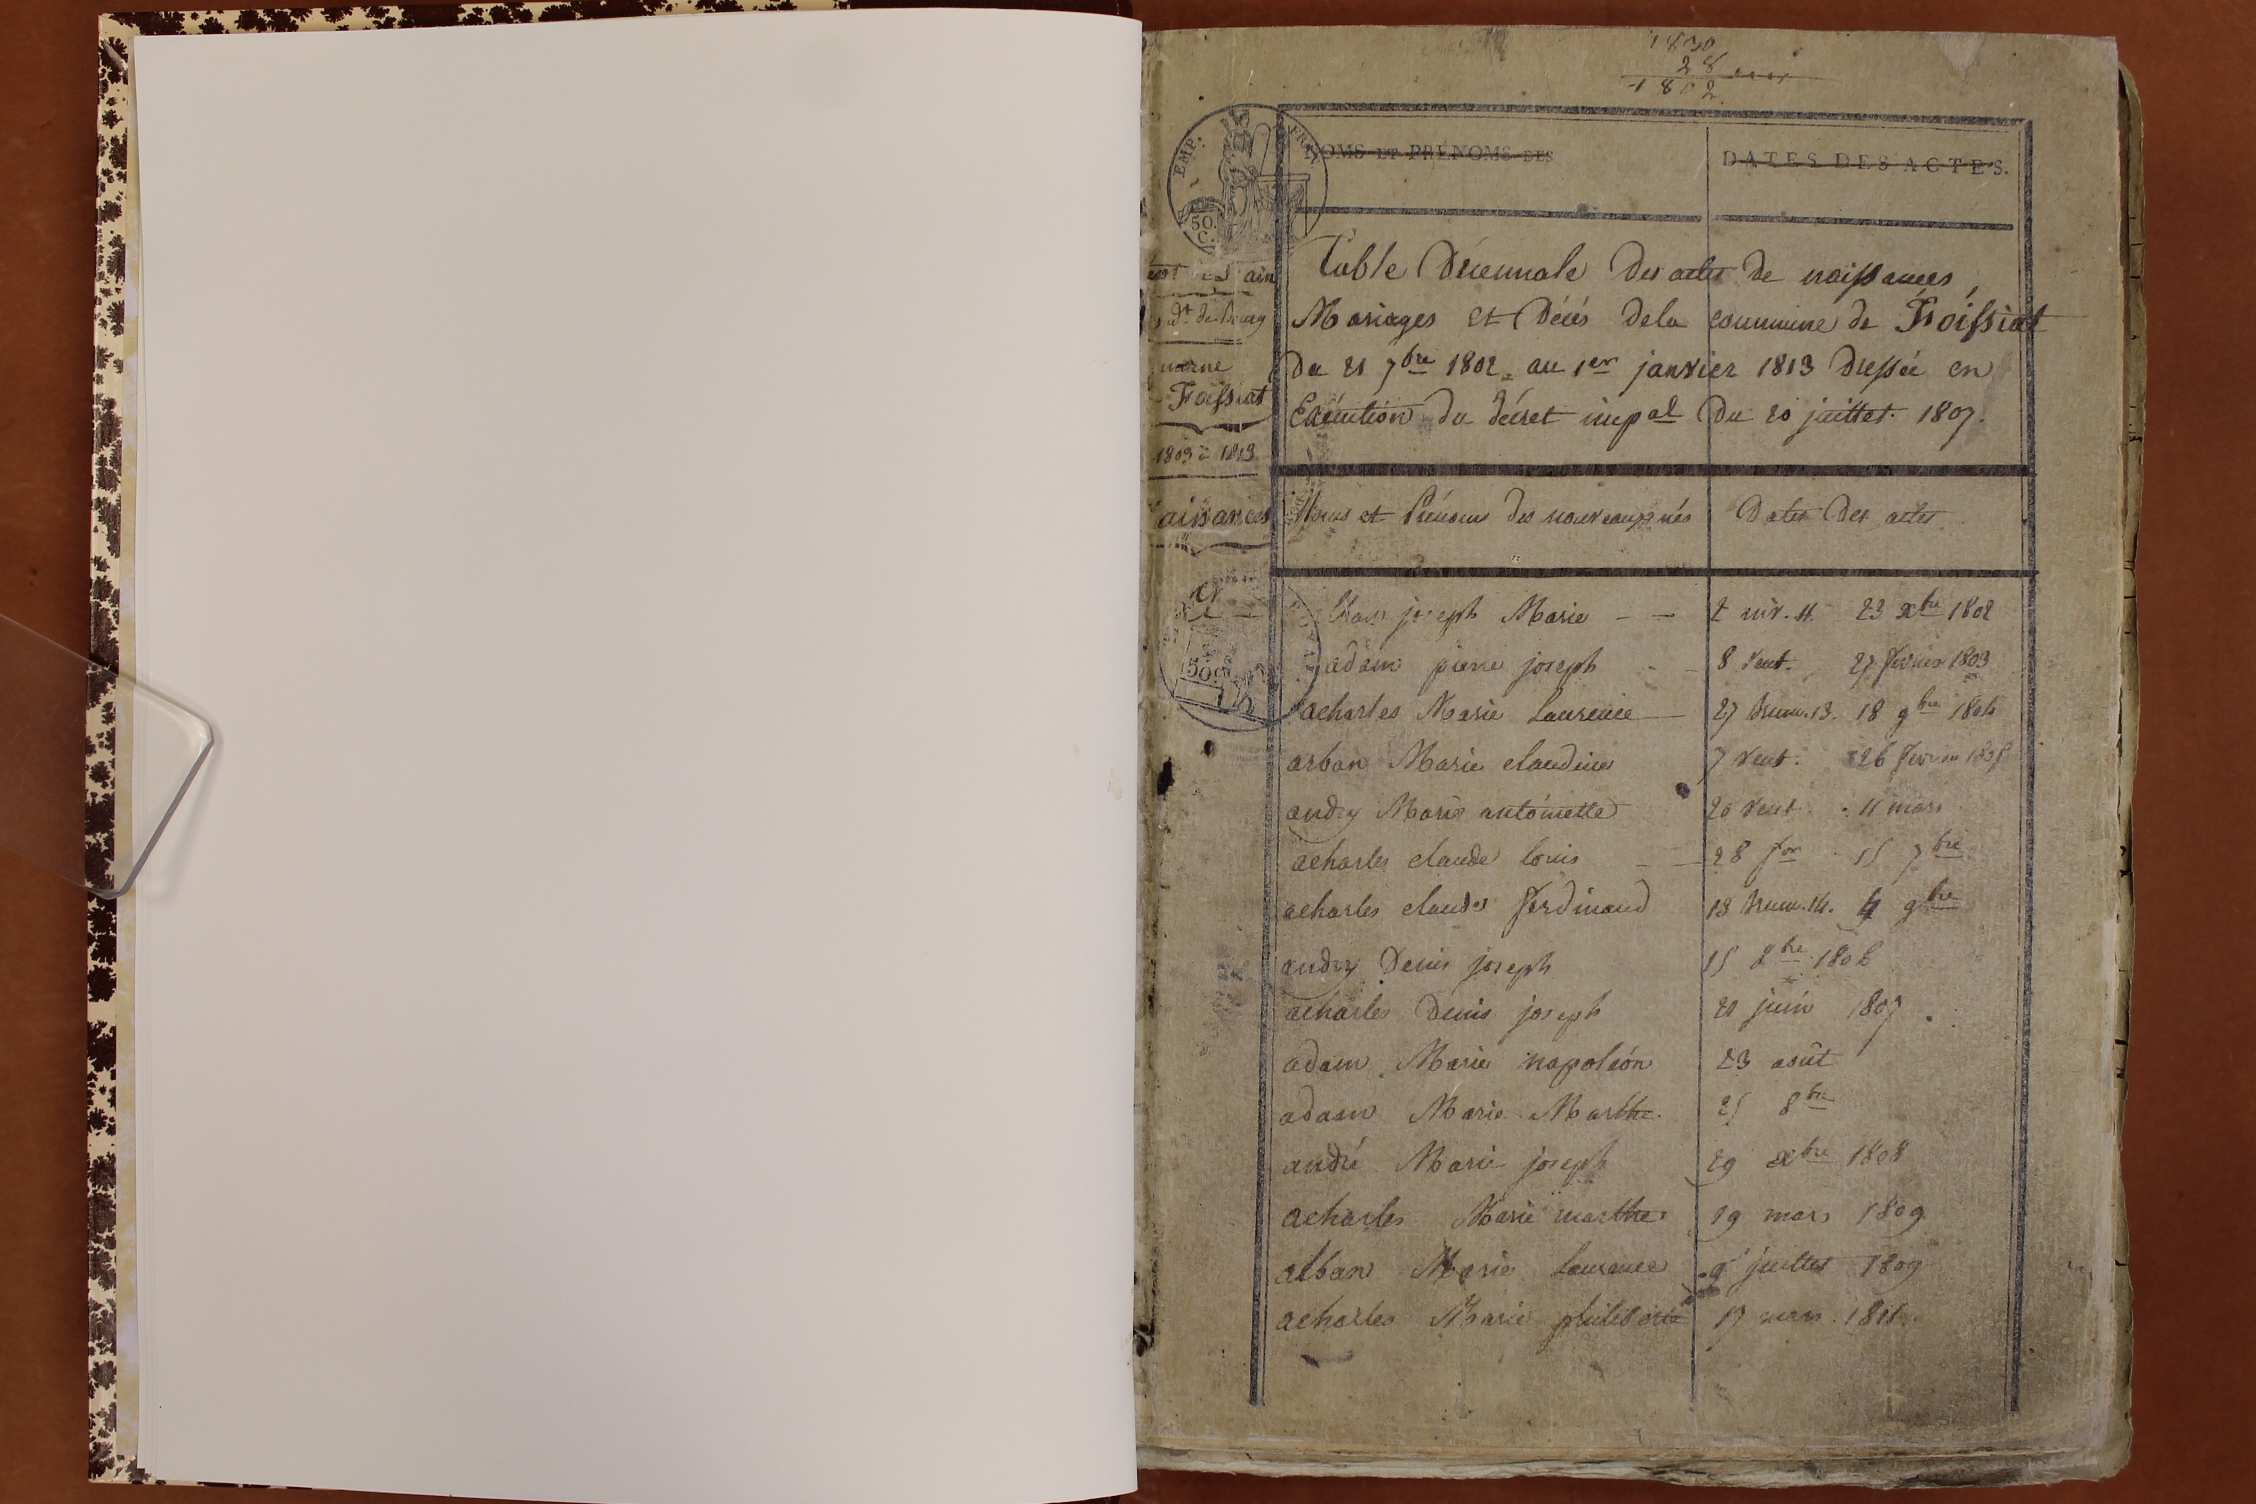 1830
28
1802
EMP. FRAN
50.
C.
NOMS ET PRÉNOMS DES
DATES DES ACTES.
ain
Table Décennale Des actes De naissances,
Mariages et Décés dela commune de Foissiat
Du 21 7bre 1802 au 1er janvier 1813 Dressée en
Exécution du décret impal Du 20 juillet 1807.
Foissiat
1803 à 1813
aissances
Noms et Prénoms des nouveaux nés
Dates Des actes
50c
joseph Marie — — 2 niv. 11. 23 xbre 1802
adam pierre joseph — 8 vent. 27 février 1803
acharles Marie Laurence — 27 brum. 13. 18 9bre 1804
arban Marie claudine 7 vent. 26 février 1805
andry Marie antoinette 20 vent. 11 mars
acharles claude louis — — 28 for 15 7bre
acharles claude ferdinand 13 brum. 14. 4 9bre
andry Denis joseph 15 8bre 1806
acharles Denis joseph 21 juin 1807.
adam Marie napoléon 23 août
adam Marie Marthe 25 8bre
andré Marie joseph 29 xbre 1808
acharles Marie marthe 19 mars 1809
alban Marie Laurence 9 juillet 1809
acharles Marie philiberte 17 mars 1811.